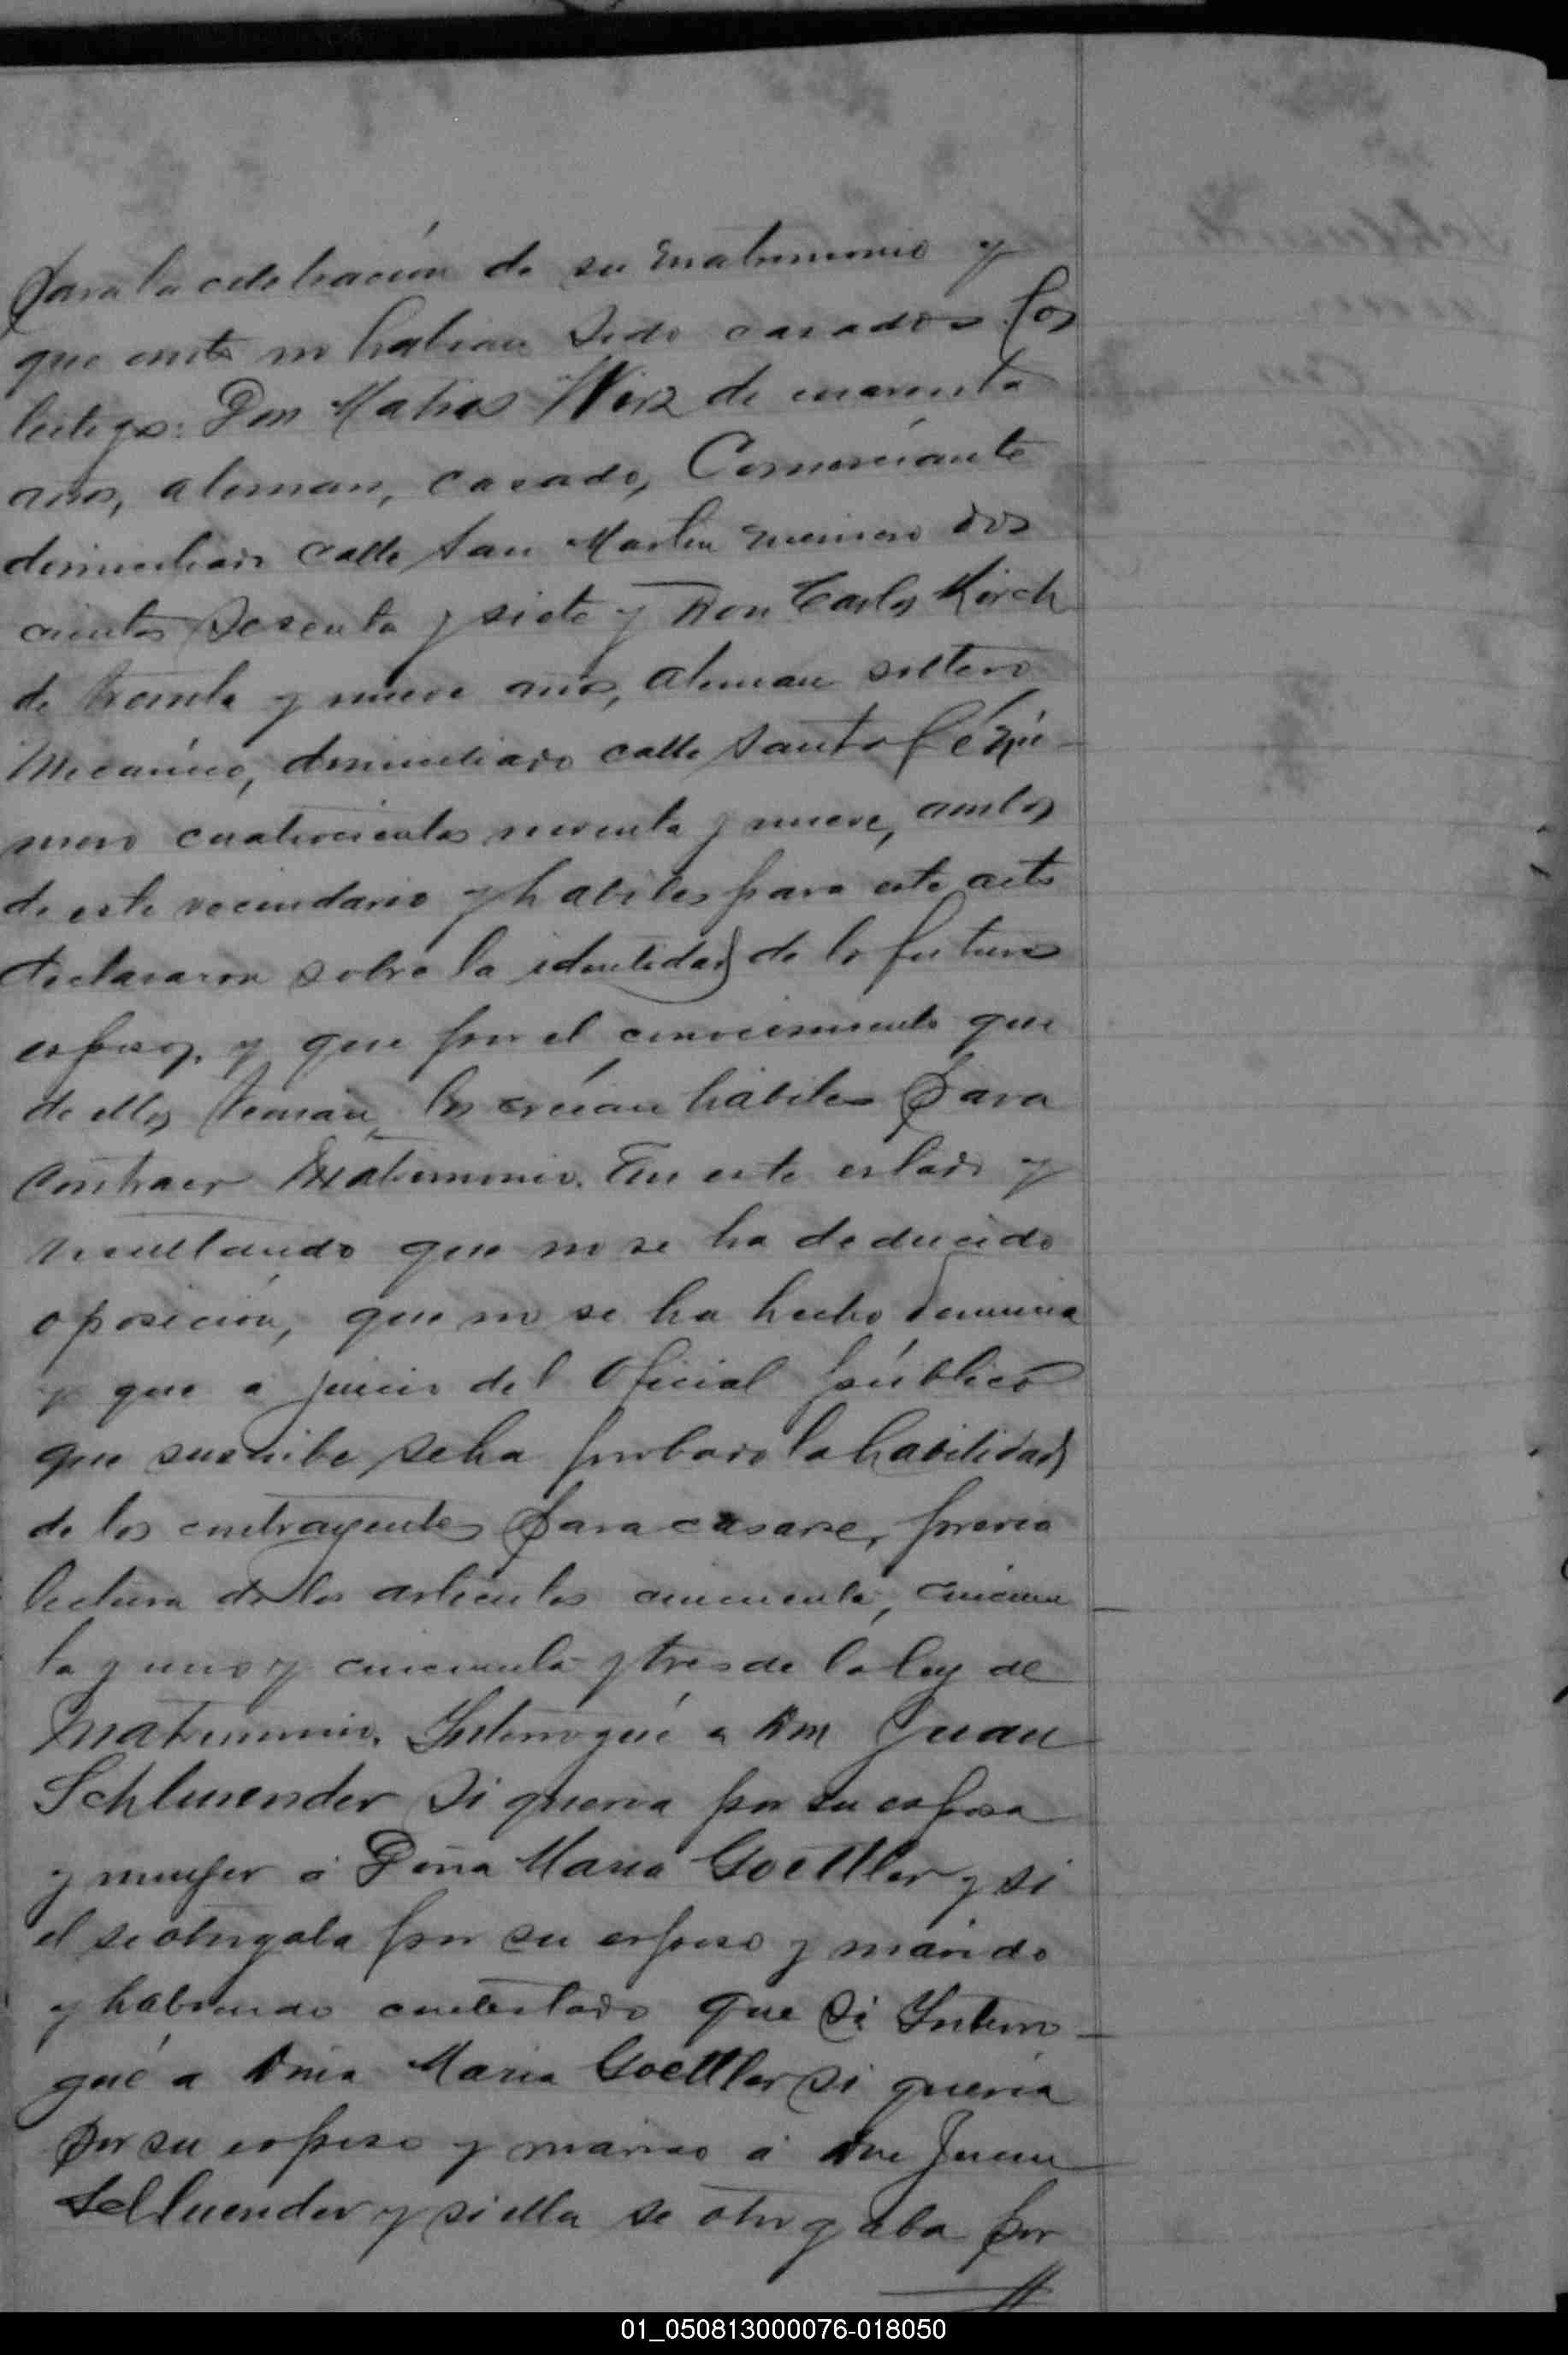 Para la celebración de su matrimonio y
que antes no habian sido casados. Los
testigos: Don Matias Wirz de cuarenta
años, aleman, casado, Comerciante
domiciliado calle San Martin número dos
cientos sesenta y siete y Don Carlos Kirch
de treinta y nueve años, aleman soltero
Mecánico, domiciliado calle Santa Fé nú-
mero cuatrocientos noventa y nueve, ambos
de este vecindario y habiles para este acto
declararon sobre la identidad de los futuros
esposos, y que por el conocimiento que
de ellos tenian, los creían hábiles Para
contraer Matrimonio. En este estado y
resultando que no se ha deducido
oposición, que no se ha hecho denuncia
y que a juicio del Oficial público
que suscribe se ha probado la habilidad
de los contrayentes Para casarse, previa
lectura de los articulos cincuenta, cincuen
ta y uno y cincuenta y tres de la ley de
Matrimonio. Interrogué a Don Juan
Schluender si queria por su esposa
y mujer á Doña Maria Goettler y si
el se otorgaba por su esposo y marido
y habiendo contestado que si Interro-
gué a Doña Maria Goettler si queria
por su esposo y marido á Don Juan
Schluender y si ella se otorgaba por
01_050813000076-018050